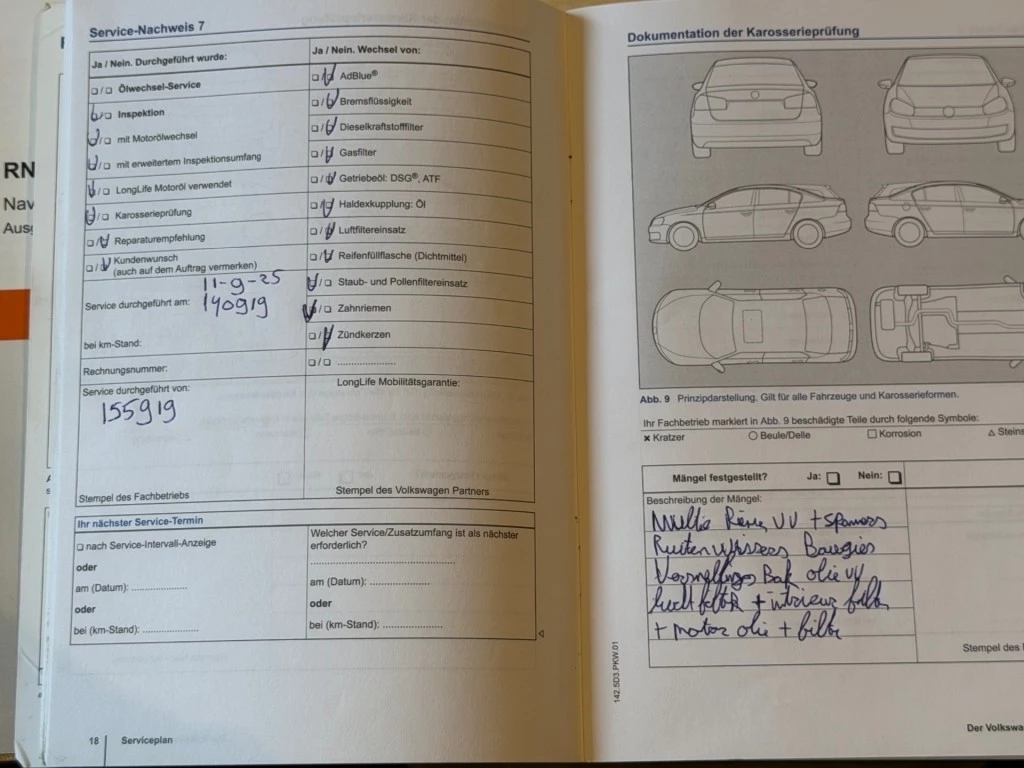 RN
Nav
Ausg
Service-Nachweis 7
Ja / Nein. Durchgeführt wurde:
Ja / Nein. Wechsel von:
☐/☐ Ölwechsel-Service
Inspektion
mit Motorölwechsel
mit erweitertem Inspektionsumfang
LongLife Motoröl verwendet
Karosserieprüfung
Reparaturempfehlung
Kundenwunsch
(auch auf dem Auftrag vermerken)
11-9-25
Service durchgeführt am: 140919
bei km-Stand:
Rechnungsnummer:
Service durchgeführt von:
155919
Stempel des Fachbetriebs
AdBlue®
Bremsflüssigkeit
Dieselkraftstofffilter
Gasfilter
Getriebeöl: DSG®, ATF
Haldexkupplung: Öl
Luftfiltereinsatz
Reifenfüllflasche (Dichtmittel)
Staub- und Pollenfiltereinsatz
Zahnriemen
Zündkerzen
☐/☐ ....................
LongLife Mobilitätsgarantie:
Stempel des Volkswagen Partners
Ihr nächster Service-Termin
☐ nach Service-Intervall-Anzeige
oder
am (Datum): ...................
oder
bei (km-Stand): ...................
Welcher Service/Zusatzumfang ist als nächster
erforderlich?
am (Datum): ....................
oder
bei (km-Stand): ....................
18 Serviceplan
Dokumentation der Karosserieprüfung
Abb. 9 Prinzipdarstellung. Gilt für alle Fahrzeuge und Karosserieformen.
Ihr Fachbetrieb markiert in Abb. 9 beschädigte Teile durch folgende Symbole:
× Kratzer ○ Beule/Delle ☐ Korrosion △ Steins
Mängel festgestellt? Ja: ☐ Nein: ☐
Beschreibung der Mängel:
Multi Riem VV + spanners
Ruitenwissers Bougies
Versnellings Bak olie VV
lucht filter + intrieur filter
+ motor olie + filter
Stempel des
142.5D3.PKW.01
Der Volkswa